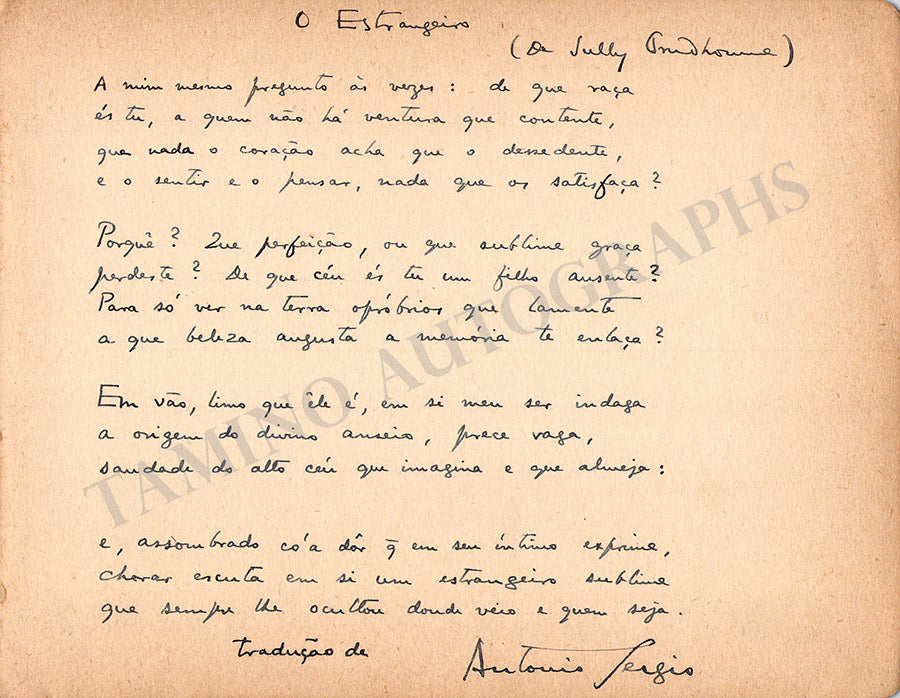 O Estrangeiro
(De Sully Prudhomme)
A mim mesmo pregunto às vezes : de que raça
és tu, a quem não há ventura que contente,
que nada o coração acha que o dessedente,
e o sentir e o pensar, nada que os satisfaça ?
Porquê ? Que perfeição, ou que sublime graça
perdeste ? De que céu és tu um filho ausente ?
Para só ver na terra opróbrios que lamente
a que beleza augusta a memória te enlaça ?
Em vão, limo que êle é, em si meu ser indaga
a origem do divino anseio, prece vaga,
saudade do alto céu que imagina e que almeja :
e, assombrado co'a dôr q̃ em seu íntimo exprime,
chorar escuta em si um estrangeiro sublime
que sempre lhe ocultou donde veio e quem seja.
tradução de
Antonio Sergio
TAMINO AUTOGRAPHS